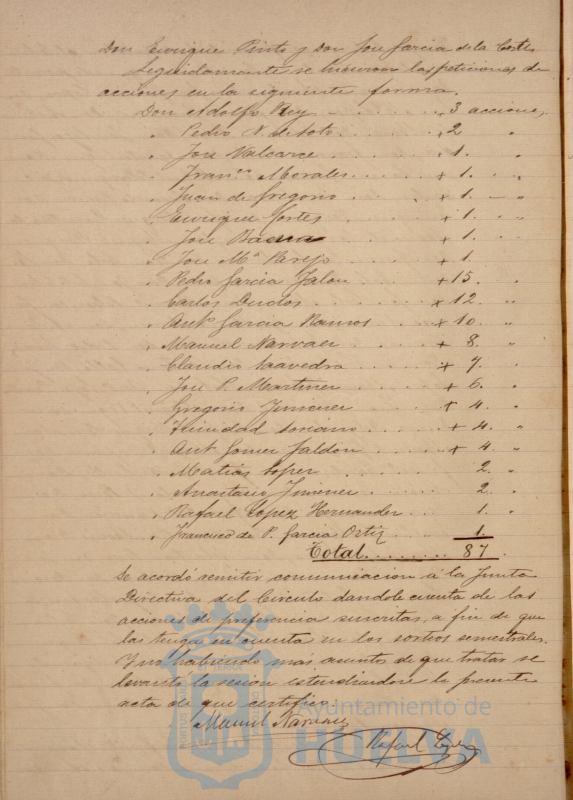 Don Enrique Pinto y Don Jose Garcia de la Corte.
Seguidamente se hicieron las peticiones de
acciones en la siguiente forma.
Don Adolfo Rey . . . . . + 3 acciones,
" Pedro N. de Soto . . . . . + 2 "
" Jose Valcarce . . . . . + 1. "
" Fran.co Morales . . . . . + 1. "
" Juan de Gregorio . . . . . + 1. "
" Enrique Cortes . . . . . + 1. "
" Jose . . . . . + 1. "
" Jose Mª Parejo . . . . . + 1.
" Pedro Garcia Jalon . . . . . + 15. "
" Carlos . . . . . + 12. "
" Antº Garcia Ramos . . . . . + 10. "
" Manuel Narvaez . . . . . + 8. "
" Claudio Saavedra . . . . . + 7. "
" Jose P. Martinez . . . . . + 6. "
" Gregorio Jimenez . . . . . + 4. "
" Trinidad Soriano . . . . . + 4. "
" Antº Gomez Jaldon . . . . . + 4. "
" Matias Lopez . . . . . 2. "
" Anastasio Jimenez . . . . . 2. "
" Rafael Lopez Hernandez . . . . . 1. "
" Francisco de P. Garcia Ortiz . . . . . 1.
Total . . . . . 87.
Se acordó remitir comunicacion á la Junta
Directiva del Circulo dandole cuenta de las
acciones de preferencia suscritas, a fin de que
las tenga en cuenta en los sorteos semestrales.
Y no habiendo mas asuntos de que tratar se
levanta la sesion estendiendose la presente
acta de que certifico.
Manuel Narvaez
Rafael Lopez
Ayuntamiento de
HUELVA